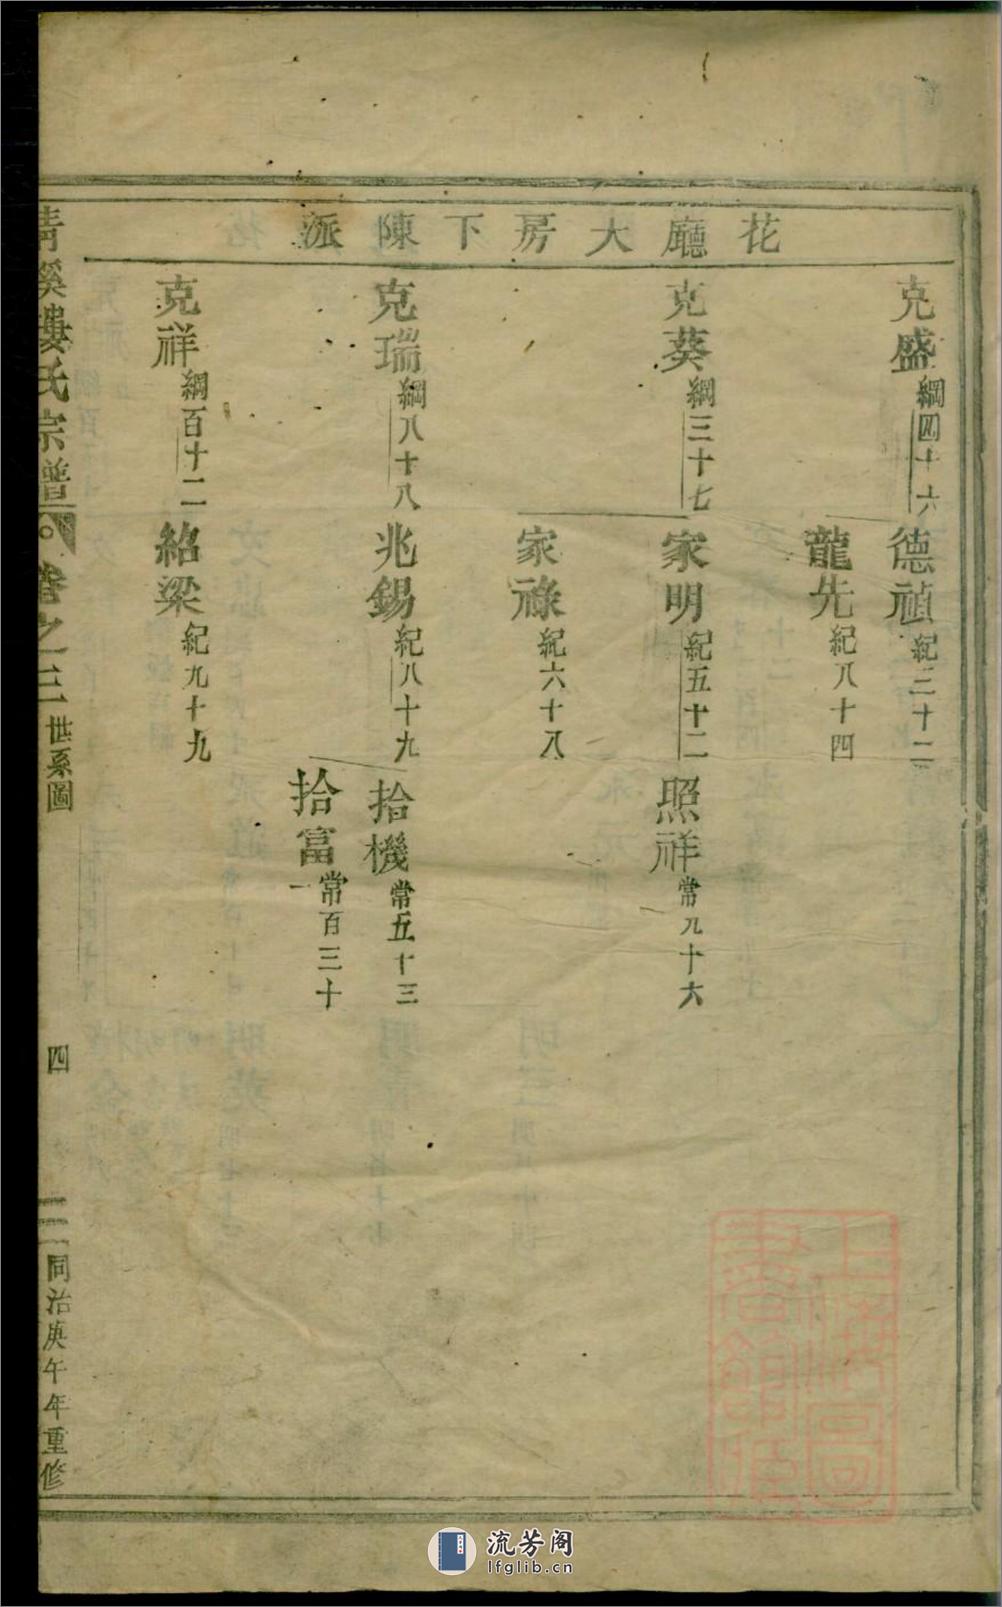 花廳大房下陳派
克盛綱四十六
德禎紀三十二
龍先紀八十四
克葵綱三十七
家明紀五十二
照祥常九十六
家祿紀六十八
克瑞綱八十八
兆錫紀八十九
拾機常五十三
拾富常百三十
克祥綱百十二
紹梁紀九十九
清溪婁氏宗譜
卷之三世系圖
四
同治庚午年重修
上海圖書館藏
流芳阁
lfglib.cn